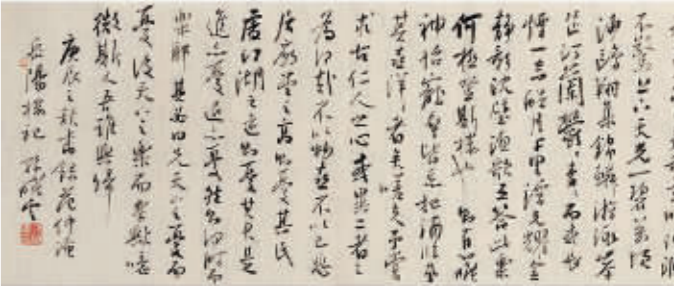 不驚上下天光一碧萬頃
沙鷗翔集錦鱗游泳岸
芷汀蘭鬱鬱青青而或長
煙一空皓月千里浮光耀金
靜影沈璧漁歌互答此樂
何極登斯樓也則有心曠
神怡寵辱皆忘把酒臨風
其喜洋洋者矣嗟夫予嘗
求古仁人之心或異二者之
為何哉不以物喜不以己悲
居廟堂之高則憂其民
處江湖之遠則憂其君是
進亦憂退亦憂然則何時而
樂耶其必曰先天下之憂而
憂後天下之樂而樂歟噫
微斯人吾誰與歸
庚辰之秋書錄范仲淹
岳陽樓記 孫曉雲